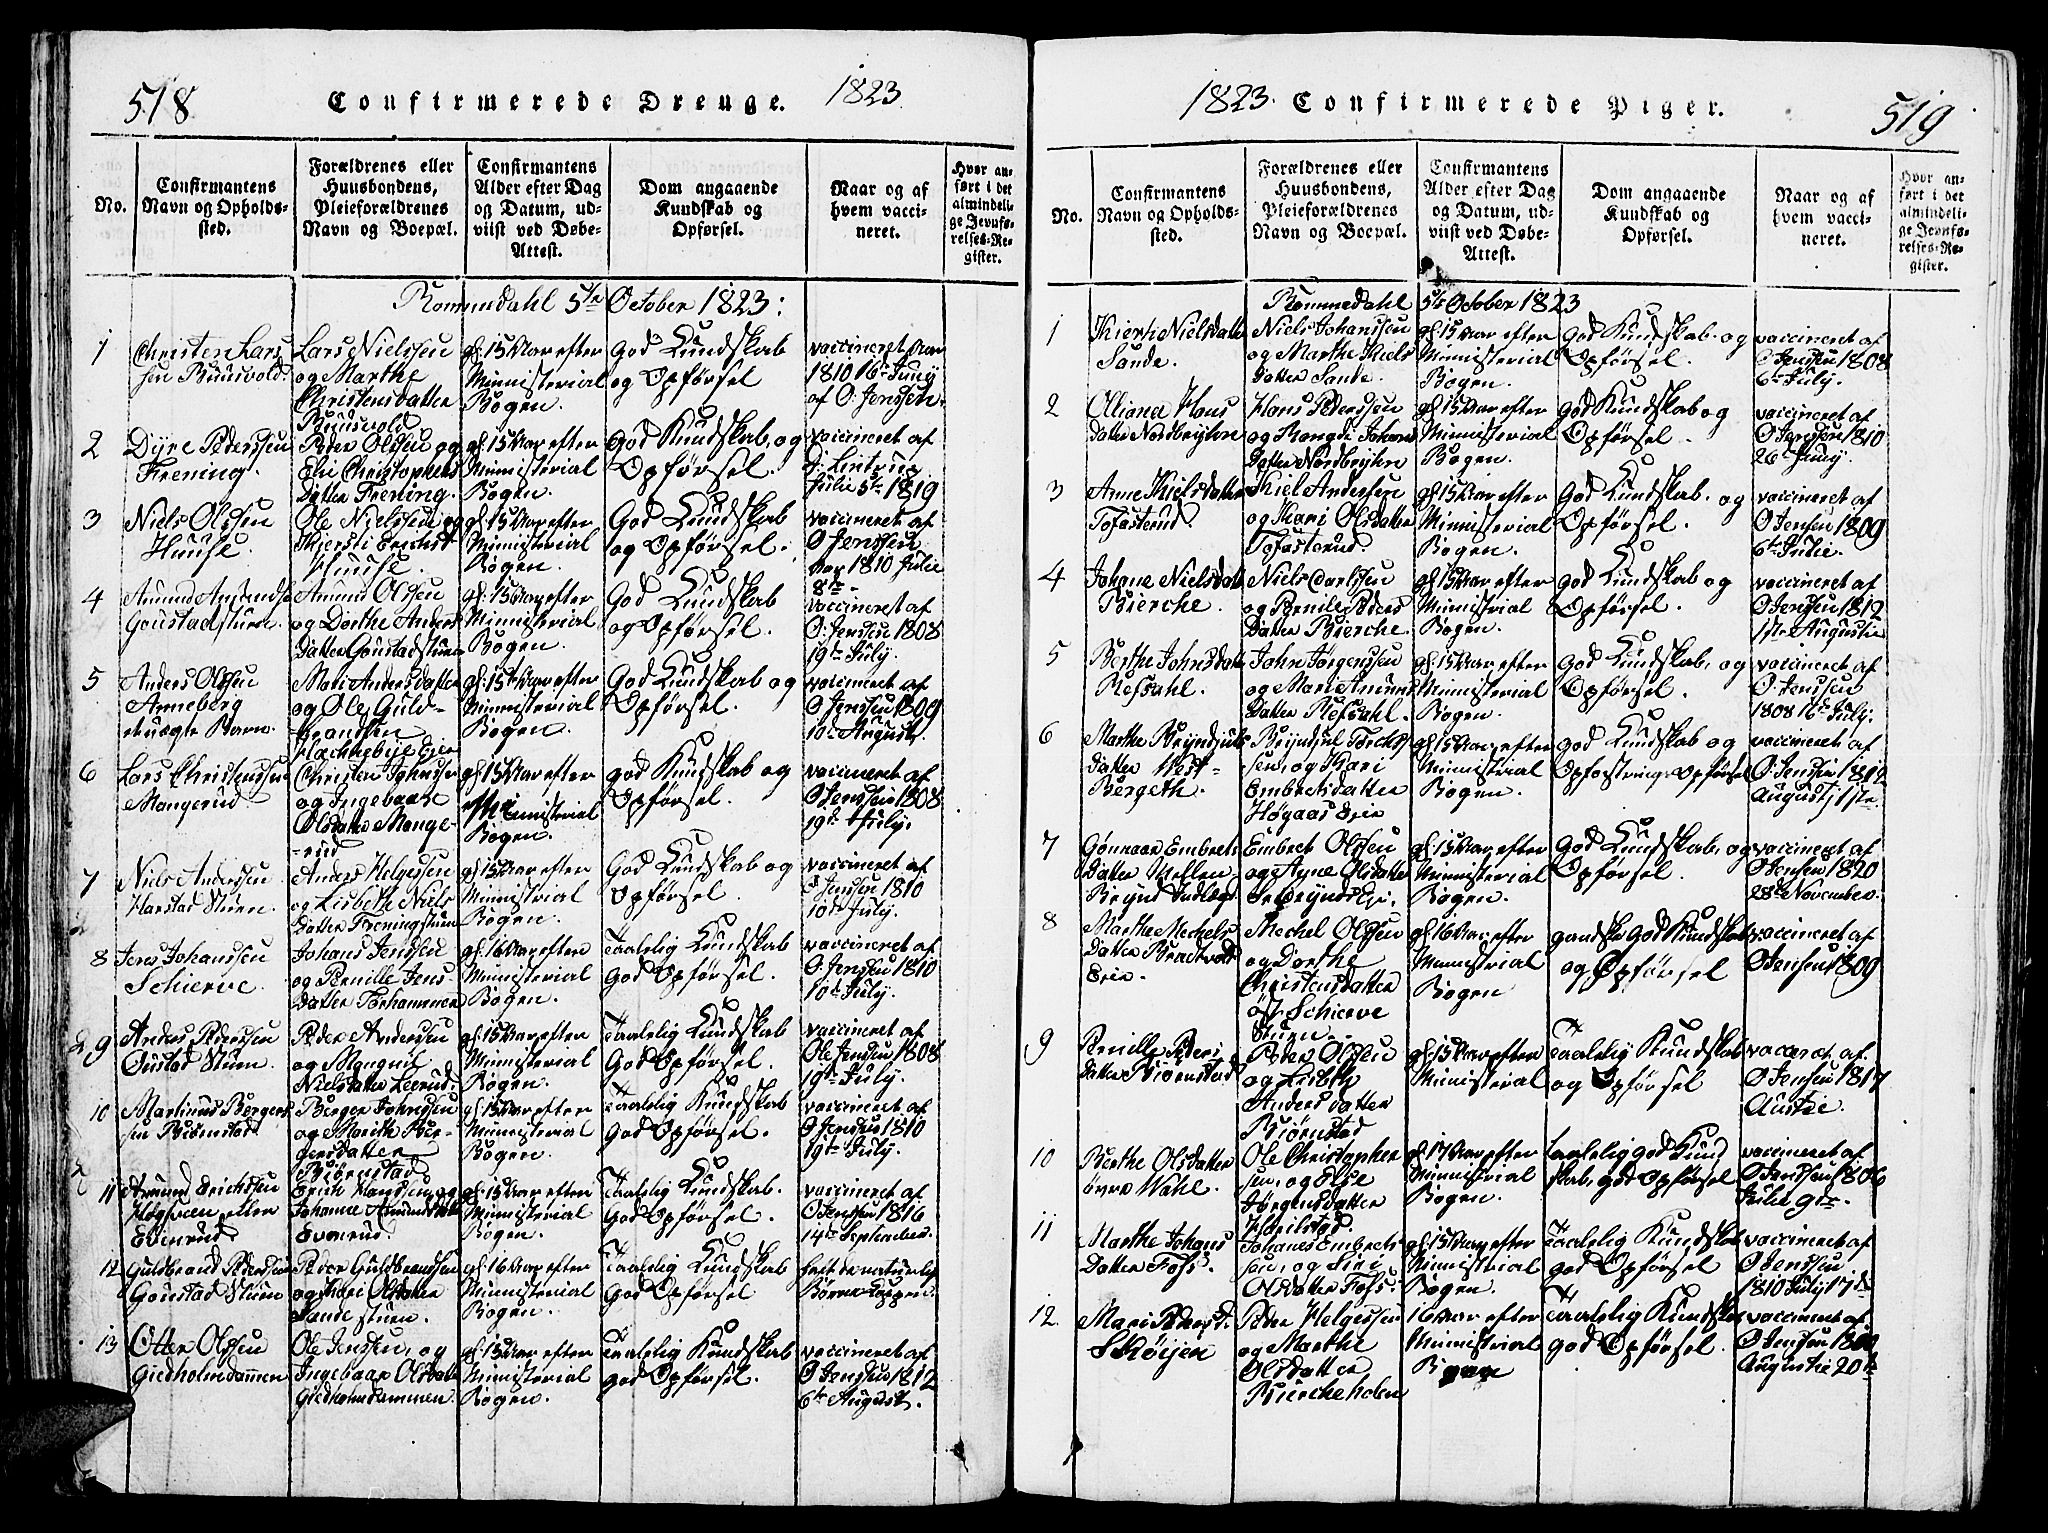 518
Confirmerede Drenge.
1823
No.
Confirmantens
Navn og Opholds-
sted.
Forældrenes eller
Huusbondens,
Pleieforældrenes
Navn og Boepæl.
Confirmantens
Alder efter Dag
og Datum, ud-
viist ved Døbe-
Attest.
Dom angaaende
Kundskab og
Opførsel.
Naar og af
hvem vacci-
neret.
Hvor an-
ført i det
almindeli-
ge Jevnfø-
relses-Re-
gister.
Rommedahl 5te October 1823:
1
Christen Lars
sen Ruusvold
Lars Nielssen
og Marthe
Christensdatter
Ruusvold
gl: 15 Aar efter
Ministerial
Bogen.
God Kundskab
og Opførsel
vaccineret Aar
1810 16de Juny
af O: Jenssen.
2
Dyre Pederssen
Frening.
Peder Olssen og
Eli Christophers
Datter Frening.
gl: 15 Aar efter
Ministerial
Bogen.
God Kundskab, og
Opførsel.
vaccineret af
Julie 5te 1819
3
Niels Olssen
Huuse.
Ole Nielssen og
Huuse.
gl: 15 Aar efter
Ministerial
Bogen.
God Kundskab
og Opførsel.
vaccineret af
O Jenssen
Aar 1810 Julie
8de
4
Amund
Goustadstuen
Amund Olssen
og Dorthe Anders
Datter Goustadstuen
gl: 15 Aar efter
Ministerial
Bogen.
God Kundskab
og Opførsel.
vaccineret af
O: Jenssen 1808
19de July.
5
Anders Olssen
Anneberg
uægte Barn.
Mari Andersdatter
og Ole Guld-
brandsen
gl: 15 Aar efter
Ministerial
Bogen.
God Kundskab og
Opførsel.
vaccineret af
O Jenssen 1809
10de August.
6
Lars Christenssen
Mangerud
Christen Johnssen
og Ingebaar
Olsdatter Mange-
rud
gl: 15 Aar efter
Ministerial
Bogen.
god Kundskab og
Opførsel.
vaccineret af
O Jenssen 1808
19de July.
7
Niels Anderssen
Harstad Stuen.
Anders Helgessen
og Lisbethe Niels
Datter Freningstuen
gl: 15 Aar efter
Ministerial
Bogen.
God Kundskab og
Opførsel.
vaccineret af
O Jenssen 1810
10de July.
8
Jens Johanssen
Schierve.
Johans Jenssen
og Pernille Jens-
Datter Torhammer
gl: 16 Aar efter
Ministerial
Bogen.
Taalelig Kundskab
God Opførsel.
vaccineret af
O: Jenssen 1810
10de July.
9
Anders Pederssen
Oustad Stuen.
Peder Anderssen
og Mangnil
Nielsdatter Leerud.
gl: 15 Aar efter
Ministerial
Bogen.
Taalelig Kundskab
God Opførsel.
vaccineret af
Ole Jenssen 1808
19de July.
10
Martinus Bergers
sen Biørnstad
Berger Johnssen
og Marith Ber-
gersdatter
Biørnstad
gl: 15 Aar efter
Ministerial
Bogen.
Taalelig Kundskab
God Opførsel.
vaccineret af
O Jenssen 1810
19de July.
11
Amund Erichssen
Evenrud
Erich Hanssen, og
Johanne Amundsdatter
Evenrud
gl: 15 Aar efter
Ministerial
Bogen.
Taalelig Kundskab.
God Opførsel.
vaccineret af
O Jenssen 1816
14de September.
12
Guldbrand Pederssen
Goustad Stuen
Peder Guldbrandsen
og Kari Olsdatter
Sande stuen.
gl: 16 Aar efter
Ministerial
Bogen.
Taalelig Kundskab
God Opførsel
haft de naturlige
Børne Kopper.
13
Otter Olssen
Giedholmdammen
Ole Jenssen, og
Ingebaar Olsdatter
Giedholmdammen.
gl: 15 Aar efter
Ministerial
Bogen.
Taalelig Kundskab
god Opførsel.
vaccineret af
O Jenssen 1812
6te August.
1823.
Confirmerede Piger.
519
No.
Confirmantens
Navn og Opholds-
sted.
Forældrenes eller
Huusbondens,
Pleieforældrenes
Navn og Boepæl.
Confirmantens
Alder efter Dag
og Datum, ud-
viist ved Døbe-
Attest.
Dom angaaende
Kundskab og
Opførsel.
Naar og af
hvem vacci-
neret.
Hvor an-
ført i det
almindeli-
ge Jevnfø-
relses-Re-
gister.
Rommedahl 5te October 1823
1
Kiersti Nielsdatter
Sande.
Niels Johanssen
og Marthe Kiels
Datter Sande.
gl: 15 Aar efter
Ministerial
Bogen.
God Kundskab. og
Opførsel.
vaccineret af
O Jenssen 1808
6te July.
2
Oliana Hans
Datter Nordbryhn
Hans Pederssen
og Rangdi Johans
Datter Nordbryhn
gl: 15 Aar efter
Ministerial
Bogen.
God Kundskab og
Opførsel.
vaccineret af
O Jenssen 1810
26de Juny.
3
Anne Kielsdatter
Tofasterud.
Kiel Andersen
og Kari Olsdatter
Tofasterud.
gl: 15 Aar efter
Ministerial
Bogen.
God Kundskab. og
Opførsel.
vaccineret af
O Jensen 1809
6te Julie.
4
Johane Nielsdatter
Bierche.
Niels Carlssen
og Pernille Peders
Datter Bierche.
gl: 15 Aar efter
Ministerial
Bogen.
God Kundskab og
Opførsel.
vaccineret af
O Jensen 1812
1ste Augustie
5
Berthe Johnsdatter
Refsahl.
John Jørgenssen
og Mari Amunds
Datter Refsahl.
gl: 15 Aar efter
Ministerial
Bogen.
God Kundskab, og
Opførsel.
vaccineret af
O: Jenssen
1808 16de July.
6
Marthe Bryndjuls
Datter Vest-
Bergeth.
Bryndjul
sen, og Kari
Embretsdatter
Høgaas Eie
gl: 15 Aar efter
Ministerial
Bogen.
God Kundskab og
Opførsel
vaccineret af
O Jenssen 1812
Augustj 1ste.
7
Gønnaar Embrets
Datter Mellem
Brynd
Embret Olssen
og Agne Olsdatter
gl: 15 Aar efter
Ministerial
Bogen.
God Kundskab, og
Opførsel.
vaccineret af
O Jenssen 1820
28de November.
8
Marthe Mechels
Datter
Eie.
Mechel Olssen
og Dorthe
Christensdatter
øst Schierve
Stuen.
gl: 16 Aar efter
Ministerial
Bogen
gandske god Kundskab
og Opførsel
vaccineret af
O Jensen 1809
9
Pernille Peders
Datter Biørnstad
Peder Olssen
og Lisbeth
Anders datter
Biørnstad
gl: 15 Aar efter
Ministerial
Taalelig Kundskab
og Opførsel
af.
O Jensen 1817
10
Berthe Olsdatter
øvre Wahl.
Ole Christopher
sen, og Else
Jørgensdatter
gl: 17 Aar efter
Ministerial
Bogen
taalelig god Kund
skab, god Opførsel
vaccineret af
O Jenssen 1806
Julie 9de
11
Marthe Johans
Datter Fofs.
Johanes Embrets-
sen, og Siri
Olsdatter Fofs.
gl: 15 Aar efter
Ministerial
Bogen.
Taalelig Kundskab
god Opførsel
vaccineret af
O Jenssen
1810 July 17de
12.
Mari Pedersd.
Skøyen
Peder Helgessen
og Marthe
Olsdatter
Biercheholen
16 Aar efter
Ministerial
Bogen
Taalelig Kundskab
god Opførsel.
vaccineret af.
O Jensen
Augustie 20de